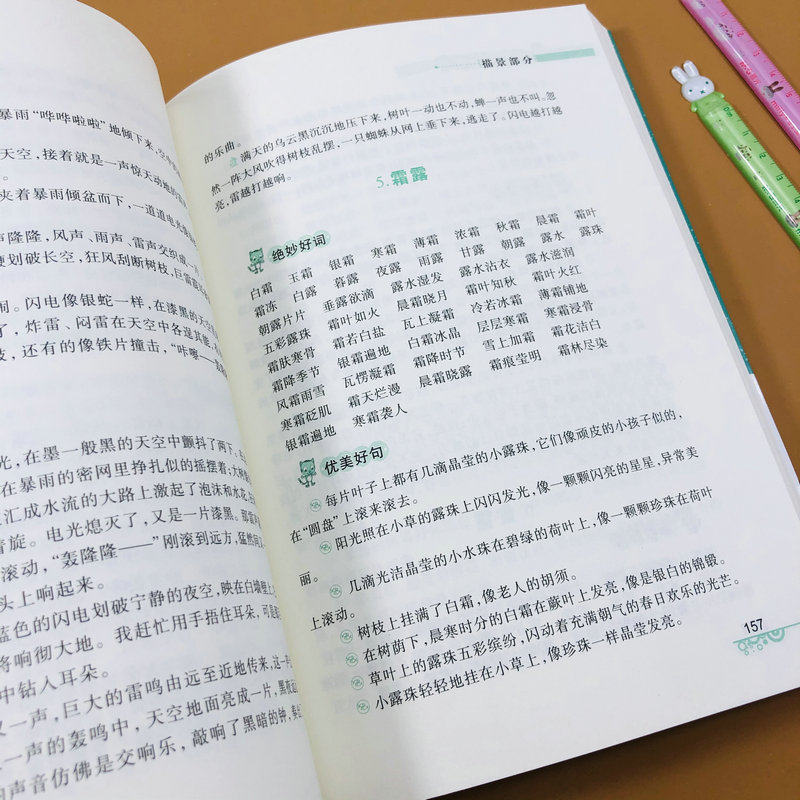 暴雨“哗哗啦啦”地倾下来,
天空,接着就是一声惊天动地的
夹着暴雨倾盆而下,一道道电光
声隆隆,风声、雨声、雷声交织成一
划破长空,狂风刮断树枝,巨雷
闹。闪电像银蛇一样,在漆黑的天
了,炸雷、闷雷在天空中各逞其能,
还有的像铁片撞击,“咔嚓——
光,在墨一般黑的天空中颤抖了两下。
在暴雨的密网里挣扎似的摇摆着:大
汇成水流的大路上激起了泡沫和水花,
音旋。电光熄灭了,又是一片漆黑。那
滚动,“轰隆隆——”刚滚到远方,猛然
头上响起来。
蓝色的闪电划破宁静的夜空,映在白墙
将响彻大地。我赶忙用手捂住耳朵,可是
中钻入耳朵。
一声,巨大的雷鸣由远至近地传来,这一
一声的轰鸣中,天空地面亮成一片,黑夜
声音仿佛是交响乐,敲响了黑暗的钟,
描景部分
的乐曲。
满天的乌云黑沉沉地压下来,树叶一动也不动,蝉一声也不叫。忽
然一阵大风吹得树枝乱摆,一只蜘蛛从网上垂下来,逃走了。闪电越打越
亮,雷越打越响。
5.霜露
绝妙好词
白霜 玉霜 银霜 寒霜 薄霜 浓霜 秋霜 晨霜 霜叶
霜冻 白露 暮露 夜露 雨露 甘露 朝露 露水 露珠
朝露片片 垂露欲滴 露水湿发 露水沾衣 露水滋润
五彩露珠 霜叶如火 晨霜晓月 霜叶知秋 霜叶火红
霜肤寒骨 霜若白盐 瓦上凝霜 冷若冰霜 薄霜铺地
霜降季节 银霜遍地 白霜冰晶 层层寒霜 寒霜浸骨
风霜雨雪 瓦愣凝霜 霜降时节 雪上加霜 霜花洁白
寒霜砭肌 霜天烂漫 晨霜晓露 霜痕莹明 霜林尽染
银霜遍地 寒霜袭人
优美好句
每片叶子上都有几滴晶莹的小露珠,它们像顽皮的小孩子似的,
在“圆盘”上滚来滚去。
阳光照在小草的露珠上闪闪发光,像一颗颗闪亮的星星,异常美
丽。
几滴光洁晶莹的小水珠在碧绿的荷叶上,像一颗颗珍珠在荷叶
上滚动。
树枝上挂满了白霜,像老人的胡须。
在树荫下,晨寒时分的白霜在蕨叶上发亮,像是银白的锦锻。
草叶上的露珠五彩缤纷,闪动着充满朝气的春日欢乐的光芒。
小露珠轻轻地挂在小草上,像珍珠一样晶莹发亮。
157